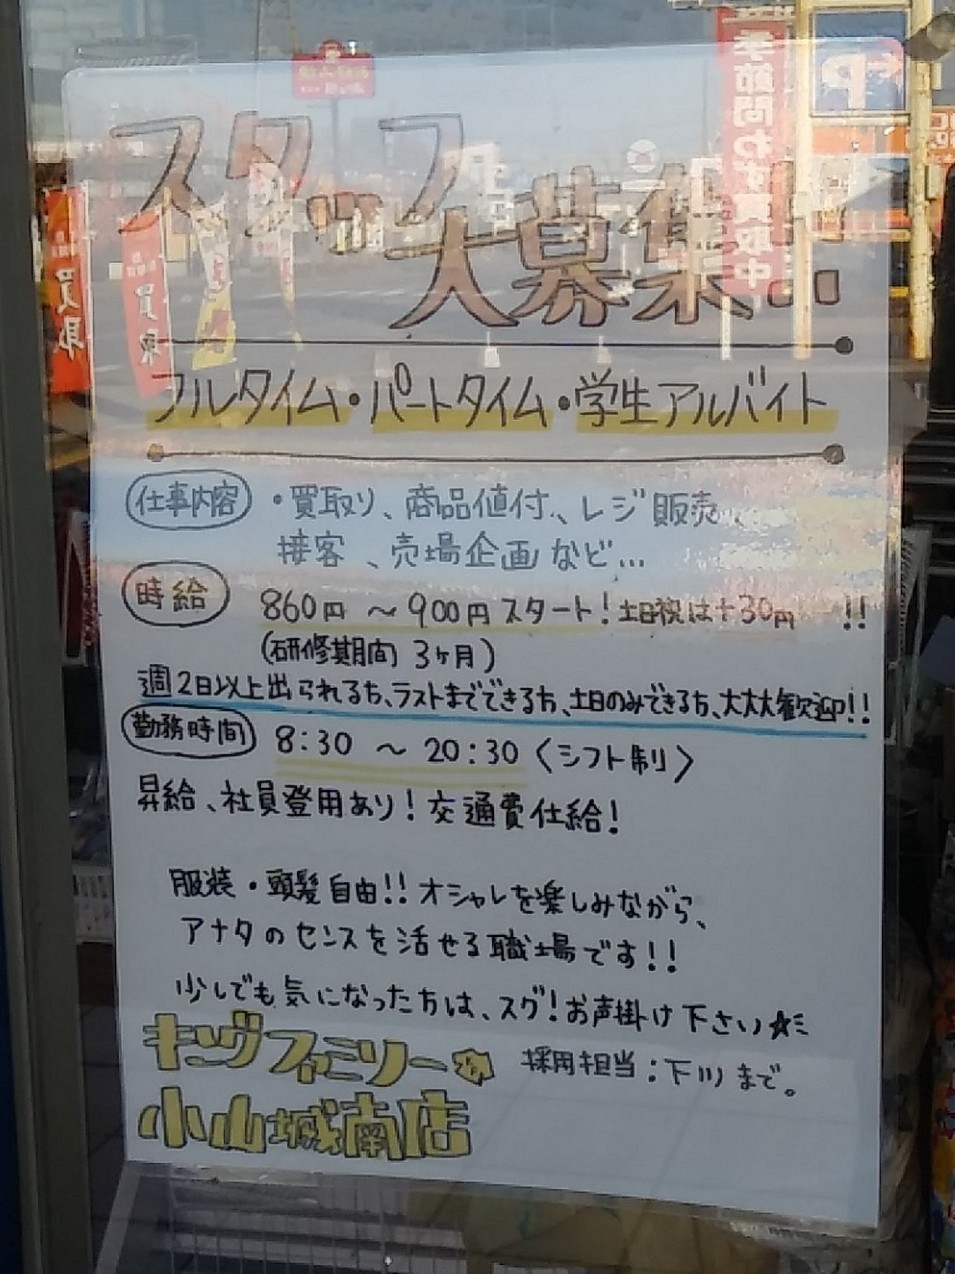 スタッフ
大募集!!
フルタイム・パートタイム・学生アルバイト
仕事内容 ・買取り、商品値付、レジ販売、
接客、売場企画など…
時給 860円 〜 900円スタート! 土日祝は+30円 !!
(研修期間 3ヶ月)
週2日以上出られる方、ラストまでできる方、土日のみできる方、大大大歓迎!!
勤務時間 8:30 〜 20:30 〈シフト制〉
昇給、社員登用あり! 交通費仕給!
服装・頭髪自由!! オシャレを楽しみながら、
アナタのセンスを活せる職場です!!
少しでも気になった方は、スグ! お声掛け下さい☆ミ
キングファミリー
採用担当:下川まで。
小山城南店
季節問わず買取中
買取
買取
P